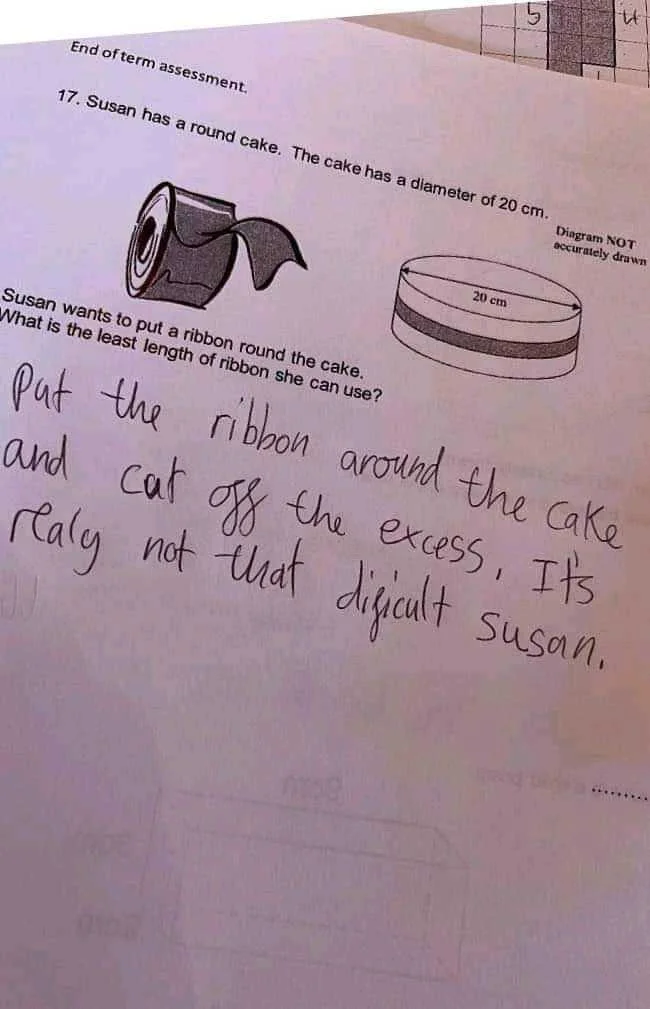 5
4
End of term assessment.
17. Susan has a round cake. The cake has a diameter of 20 cm.
Diagram NOT
accurately drawn
20 cm
Susan wants to put a ribbon round the cake.
What is the least length of ribbon she can use?
Put the ribbon around the cake
and cut off the excess, It's
realy not that dificult susan.
..........